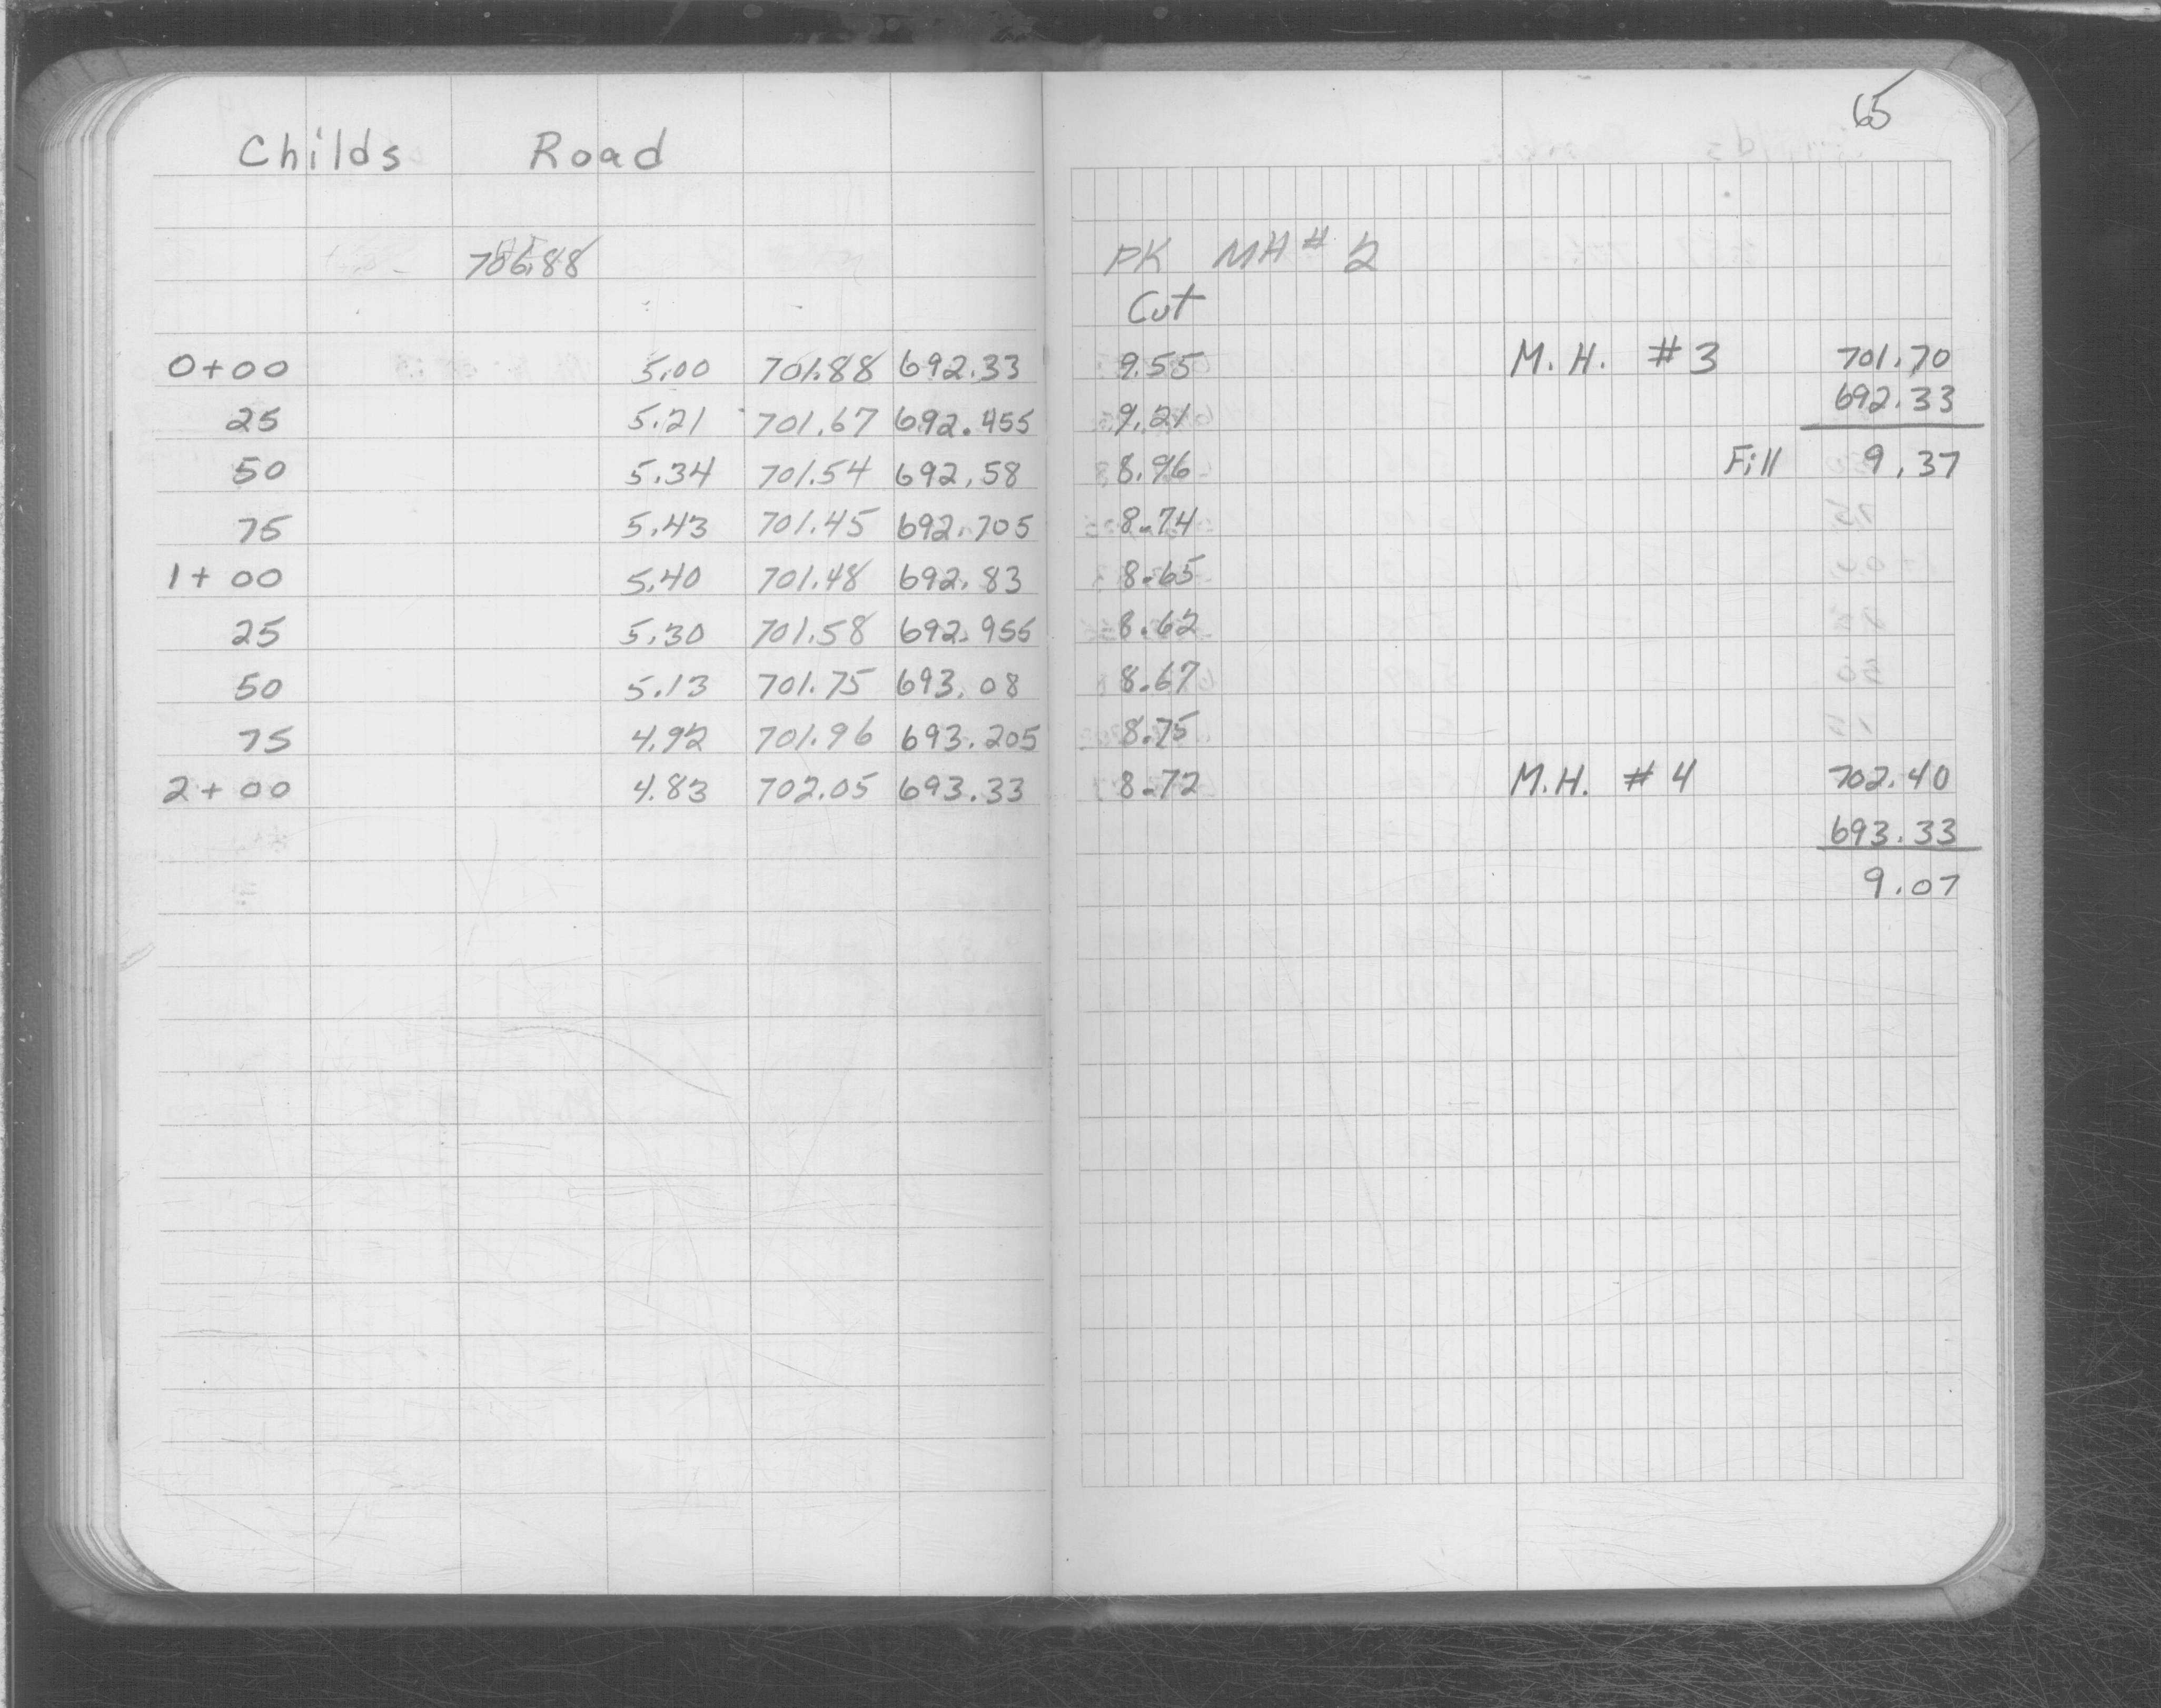 65
Childs Road
706.88 PK MH # 2
Cut
0+00 5.00 701.88 692.33 9.55 M.H. #3 701.70
692.33
25 5.21 701.67 692.455 9.21
50 5.34 701.54 692.58 8.96 Fill 9.37
75 5.43 701.45 692.705 8.74
1+00 5.40 701.48 692.83 8.65
25 5.30 701.58 692.955 8.62
50 5.13 701.75 693.08 8.67
75 4.92 701.96 693.205 8.75
2+00 4.83 702.05 693.33 8.72 M.H. #4 702.40
693.33
9.07